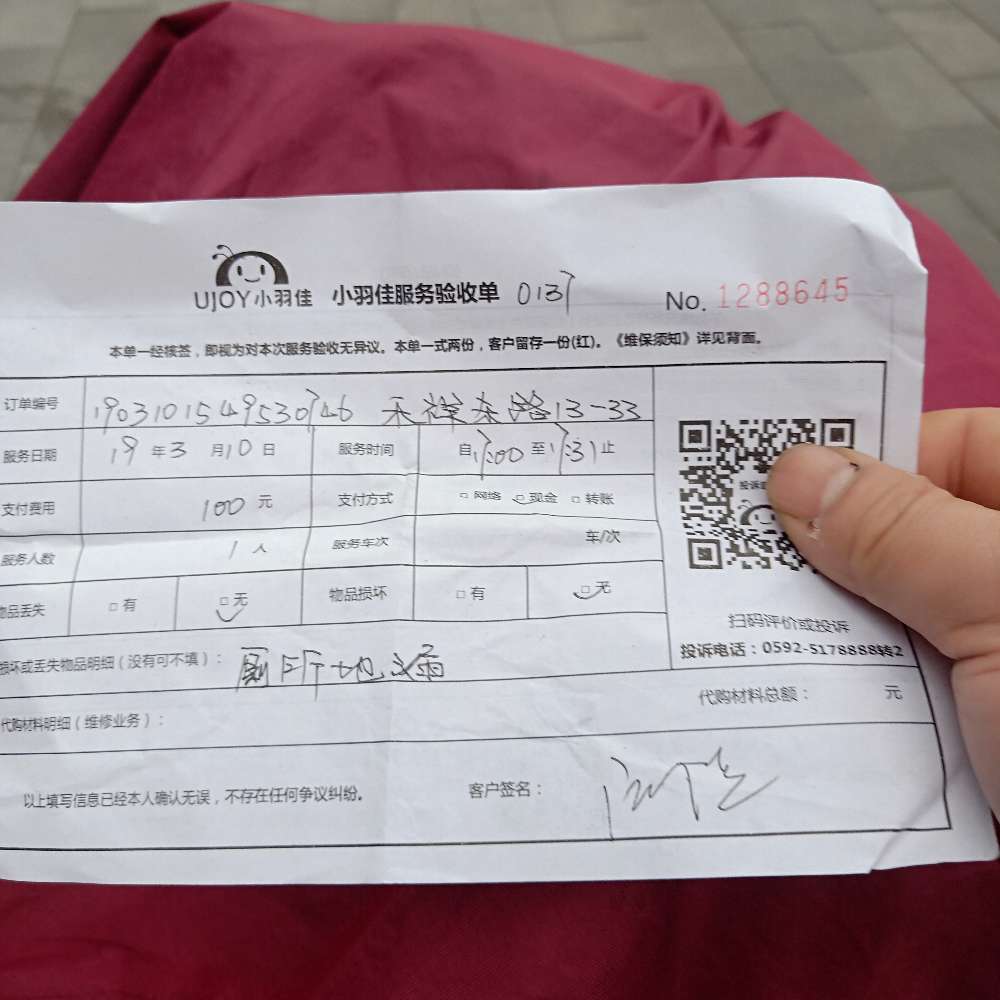 UJOY小羽佳 小羽佳服务验收单 0137 No. 1288645
本单一经核签，即视为对本次服务验收无异议。本单一式两份，客户留存一份(红)。《维保须知》详见背面。
订单编号 1903101549530746 禾祥东路13-33
服务日期 19 年 3 月 10 日 服务时间 自 17:00 至 17:31 止
支付费用 100 元 支付方式 □ 网络 □ 现金 □ 转账
服务人数 1 人 服务车次 车/次
物品丢失 □ 有 □ 无 物品损坏 □ 有 □ 无
投诉
扫码评价或投诉
投诉电话：0592-5178888转2
损坏或丢失物品明细（没有可不填）： 厕所地漏
代购材料明细（维修业务）： 代购材料总额： 元
以上填写信息已经本人确认无误，不存在任何争议纠纷。 客户签名：